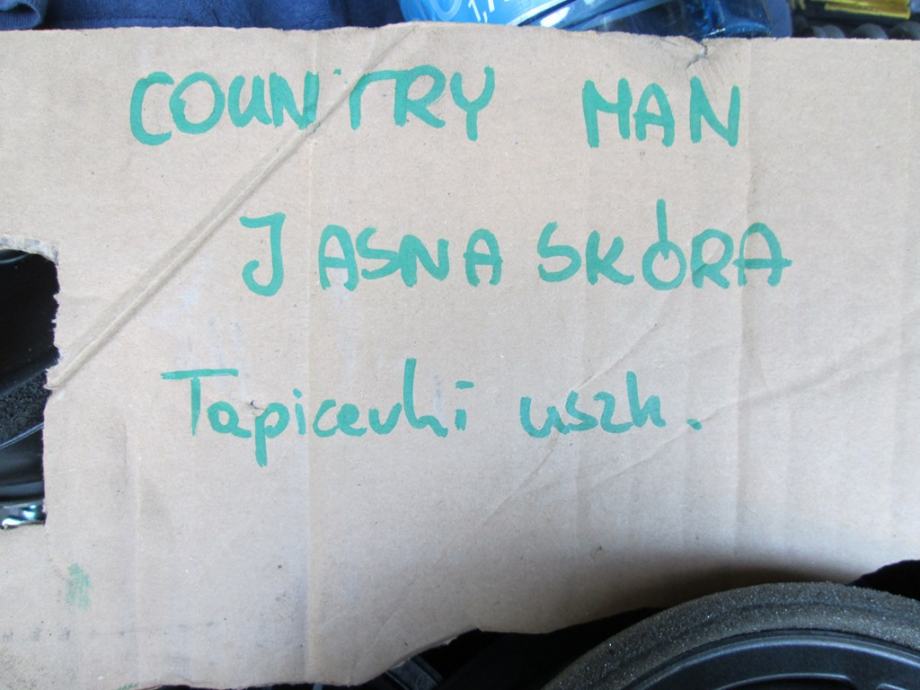 COUNTRY MAN
JASNA SKÓRA
Tapicerki uszk.